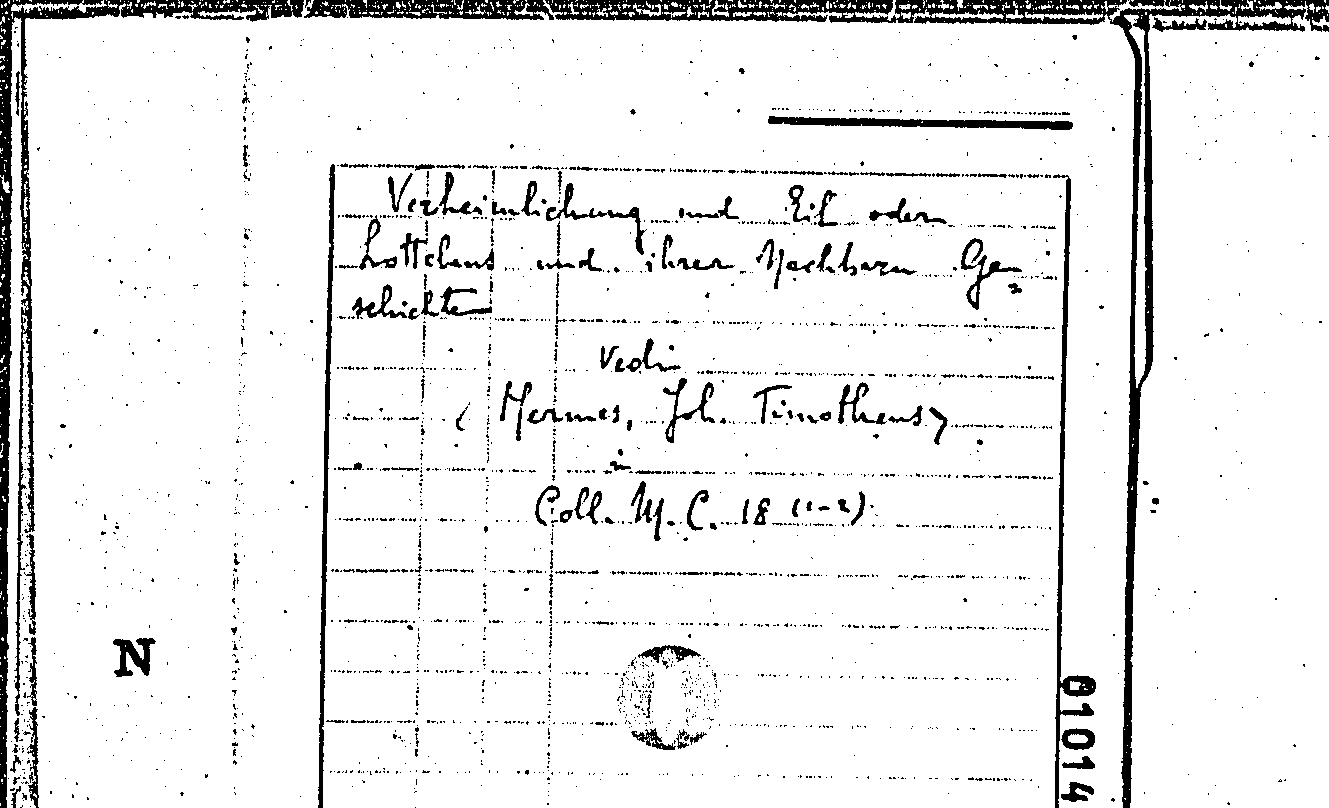 Verheimlichung und Eil oder
Lottchens und ihrer Nachbarn Ge=
schichte
Vedi
<Hermes, Joh. Timotheus>
in
Coll. M. C. 18 (1-2).
N
01014